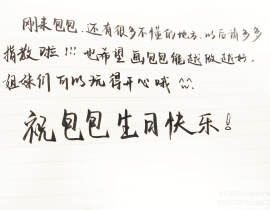 刚来包包，还有很多不懂的地方，以后请多多
指教啦!!! 也希望画包包能越做越好，
姐妹们可以玩得开心哦 ^^
祝包包生日快乐!